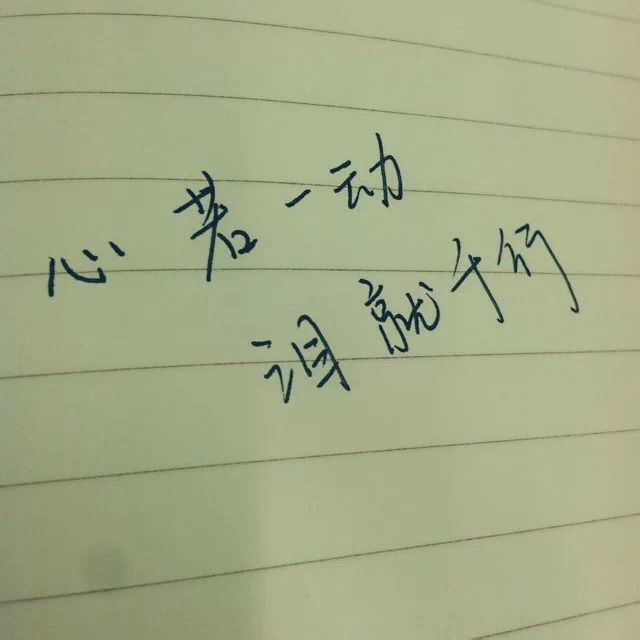 心若一动
泪就千行